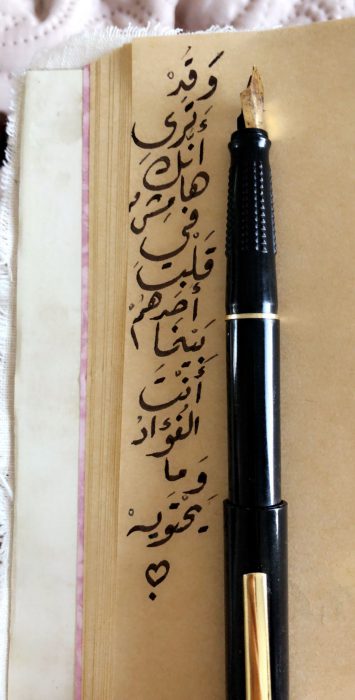 وَقَدْ
تَرَى
أَنَّكَ
هَامِشٌ
فِي
قَلْبِ
أَحَدِهُمْ
بَيْنَمَا
أَنْتَ
الفُؤَادْ
وَمَا
يَحْتَوِيهْ
♡.